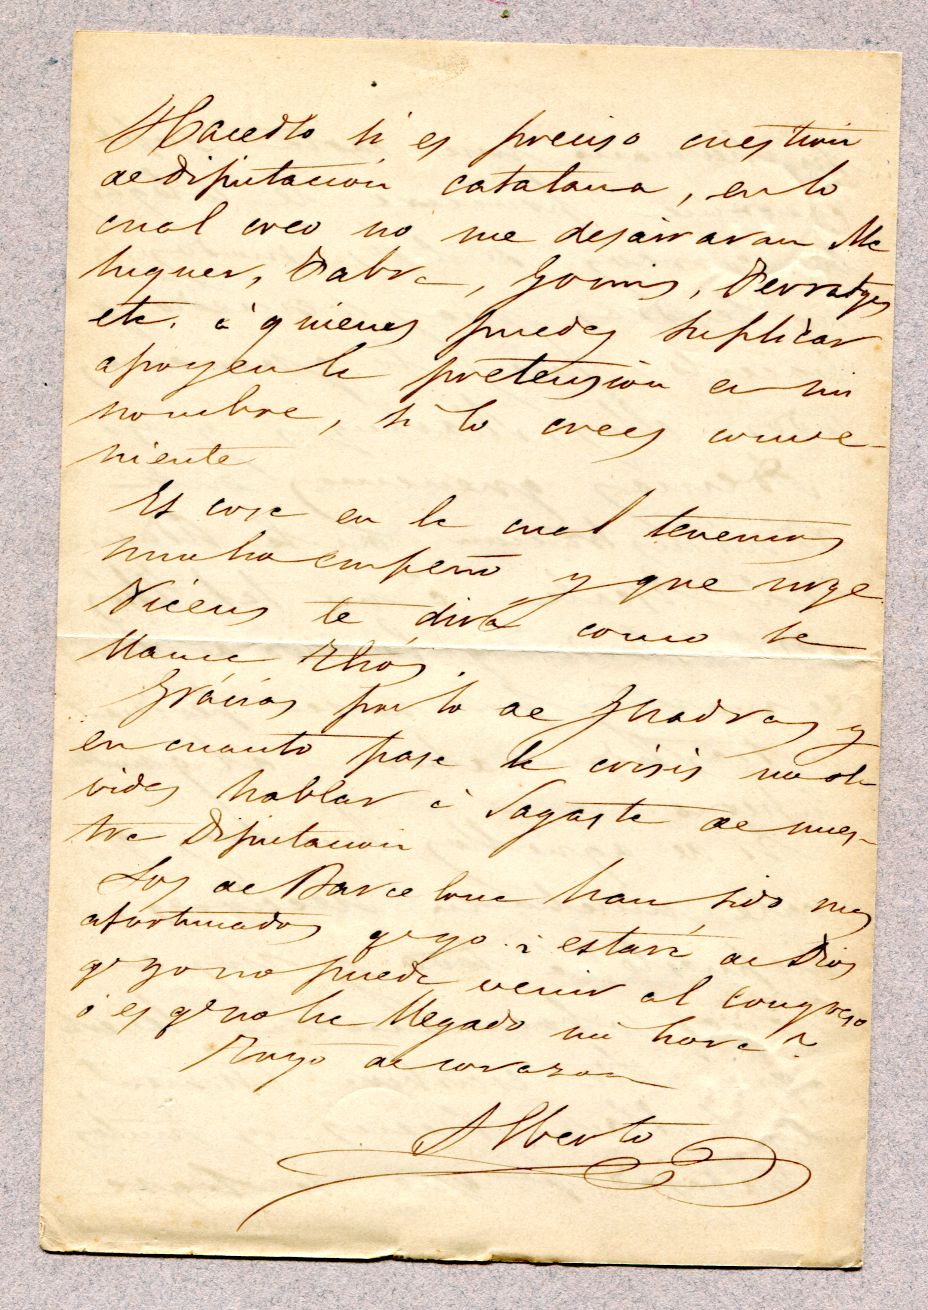 Hacedlo si es preciso cuestión
de Diputación catalana, en lo
cual creo no me desairaran Ma
luquer, Fabra, Gomis, Ferratges
etc. á quienes puedes suplicar
apoyen la pretensión en mi
nombre, si lo crees conve-
niente
Es cosa en la cual tenemos
mucho empeño y que urge.
Vicens te dirá como se
llama
Grácias por lo de y
en cuanto pase la crisis no ol
vides hablar á Sagasta de nues-
tra Diputación
Los de Barcelona han sido mas
afortunados q.e yo. ¿estará de Dios
q.e yo no puede venir al Congreso
ó es q.e no ha llegado mi hora?
Tuyo de corazon
Alberto